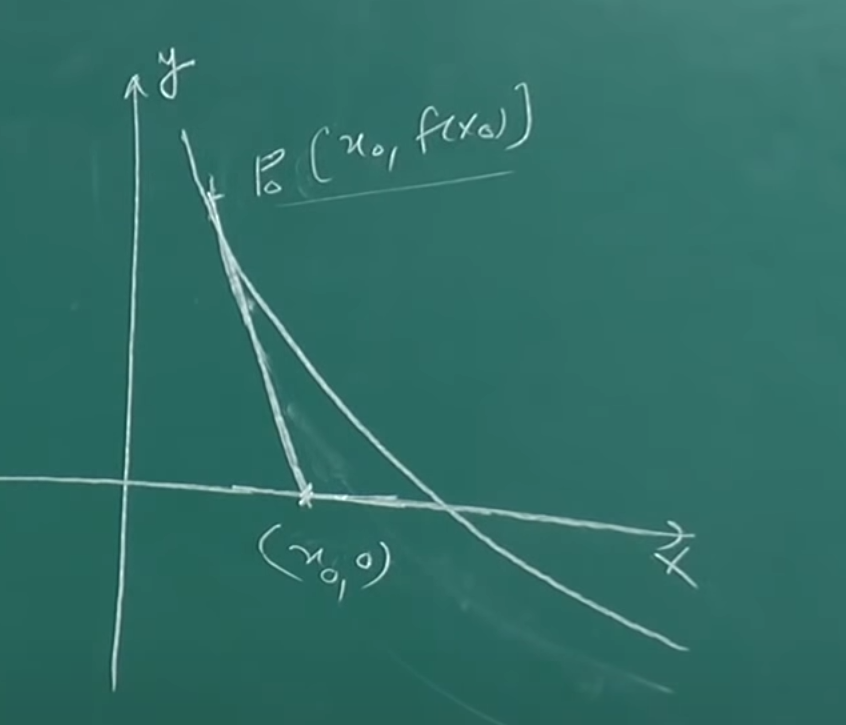 y
P₀ (x₀, f(x₀))
(x₀, 0)
x